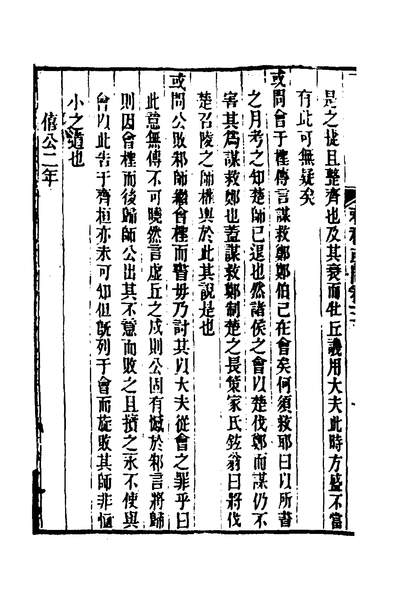 是之捷且整齊也及其衰而牡丘議用大夫此時方盛不當
有此可無疑矣
或問會于檉傳言謀救鄭鄭伯已在會矣何須救耶曰以所書
之月考之知楚師已退也然諸侯之會以楚伐鄭而謀仍不
害其為謀救鄭也蓋謀救鄭制楚之長策家氏鉉翁曰將伐
楚召陵之師權輿於此其說是也
或問公敗邾師繼會檉而書毋乃討其以大夫從會之罪乎曰
此意無傳不可曉然言虛丘之戍則公固有憾於邾言將歸
則因會檉而後歸師公出其不意而敗之且擯之永不使與
會以此告于齊桓亦未可知但既列于會而旋敗其師非恆
小之道也
僖公二年